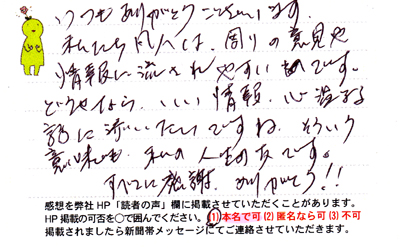 いつもありがとうございます。
私たち凡人は、周りの意見や
情報に流されやすいものです。
どうせなら、いい情報、心温まる
話に流されたいですね。そういう
意味も、私の人生の友です。
すべてに感謝、ありがとう!!
感想を弊社HP「読者の声」欄に掲載させていただくことがあります。
HP掲載の可否を○で囲んでください。(1)本名で可 (2) 匿名なら可 (3) 不可
掲載されましたら新聞帯メッセージにてご連絡させていただきます。